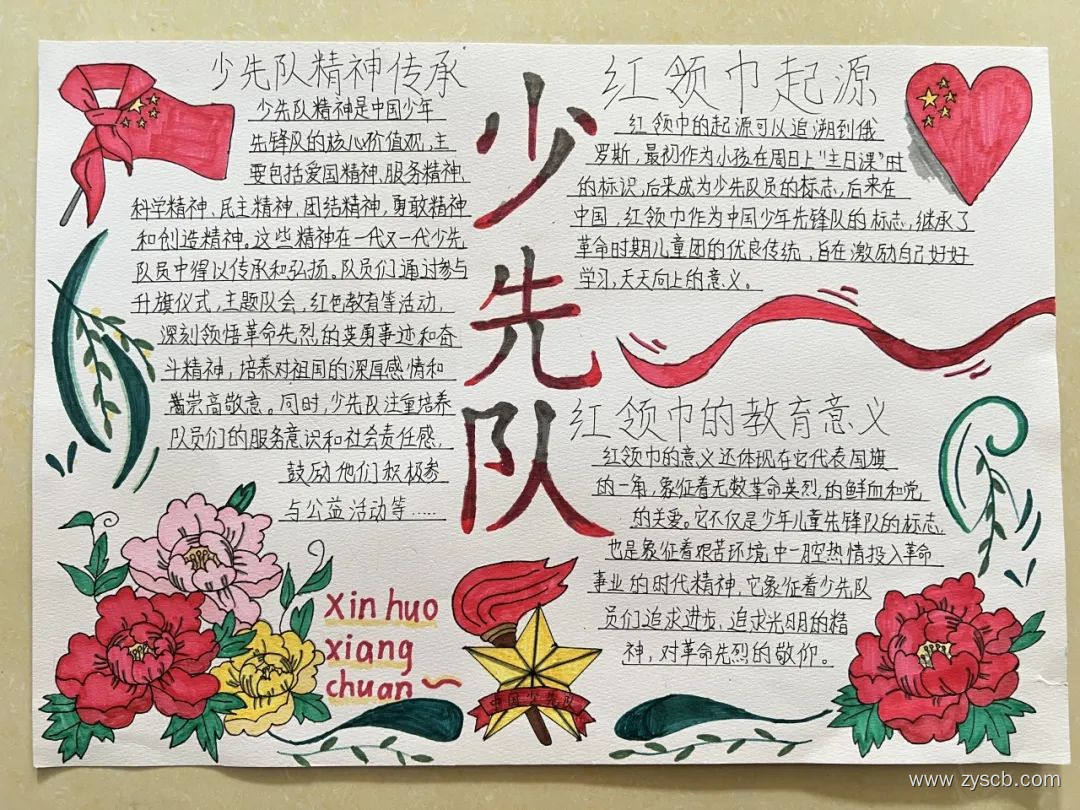 少先队精神传承
少先队精神是中国少年
先锋队的核心价值观,主
要包括爱国精神、服务精神、
科学精神、民主精神、团结精神,勇敢精神
和创造精神。这些精神在一代又一代少先
队员中得以传承和弘扬。队员们通过参与
升旗仪式,主题队会,红色教育等活动,
深刻领悟革命先烈的英勇事迹和奋
斗精神,培养对祖国的深厚感情和
崇高敬意。同时,少先队注重培养
队员们的服务意识和社会责任感,
鼓励他们积极参
与公益活动等……
少先队
红领巾起源
红领巾的起源可以追溯到俄
罗斯,最初作为小孩在周日上“主日课”时
的标识,后来成为少先队员的标志,后来在
中国,红领巾作为中国少年先锋队的标志,继承了
革命时期儿童团的优良传统,旨在激励自己好好
学习,天天向上的意义。
红领巾的教育意义
红领巾的意义还体现在它代表国旗
的一角,象征着无数革命英烈,的鲜血和党
的关爱。它不仅是少年儿童先锋队的标志,
也是象征着艰苦环境中一腔热情投入革命
事业的时代精神,它象征着少先队
员们追求进步,追求光明的精
神,对革命先烈的敬仰。
xin huo
xiang
chuan
中国少先队
www.zyscb.com